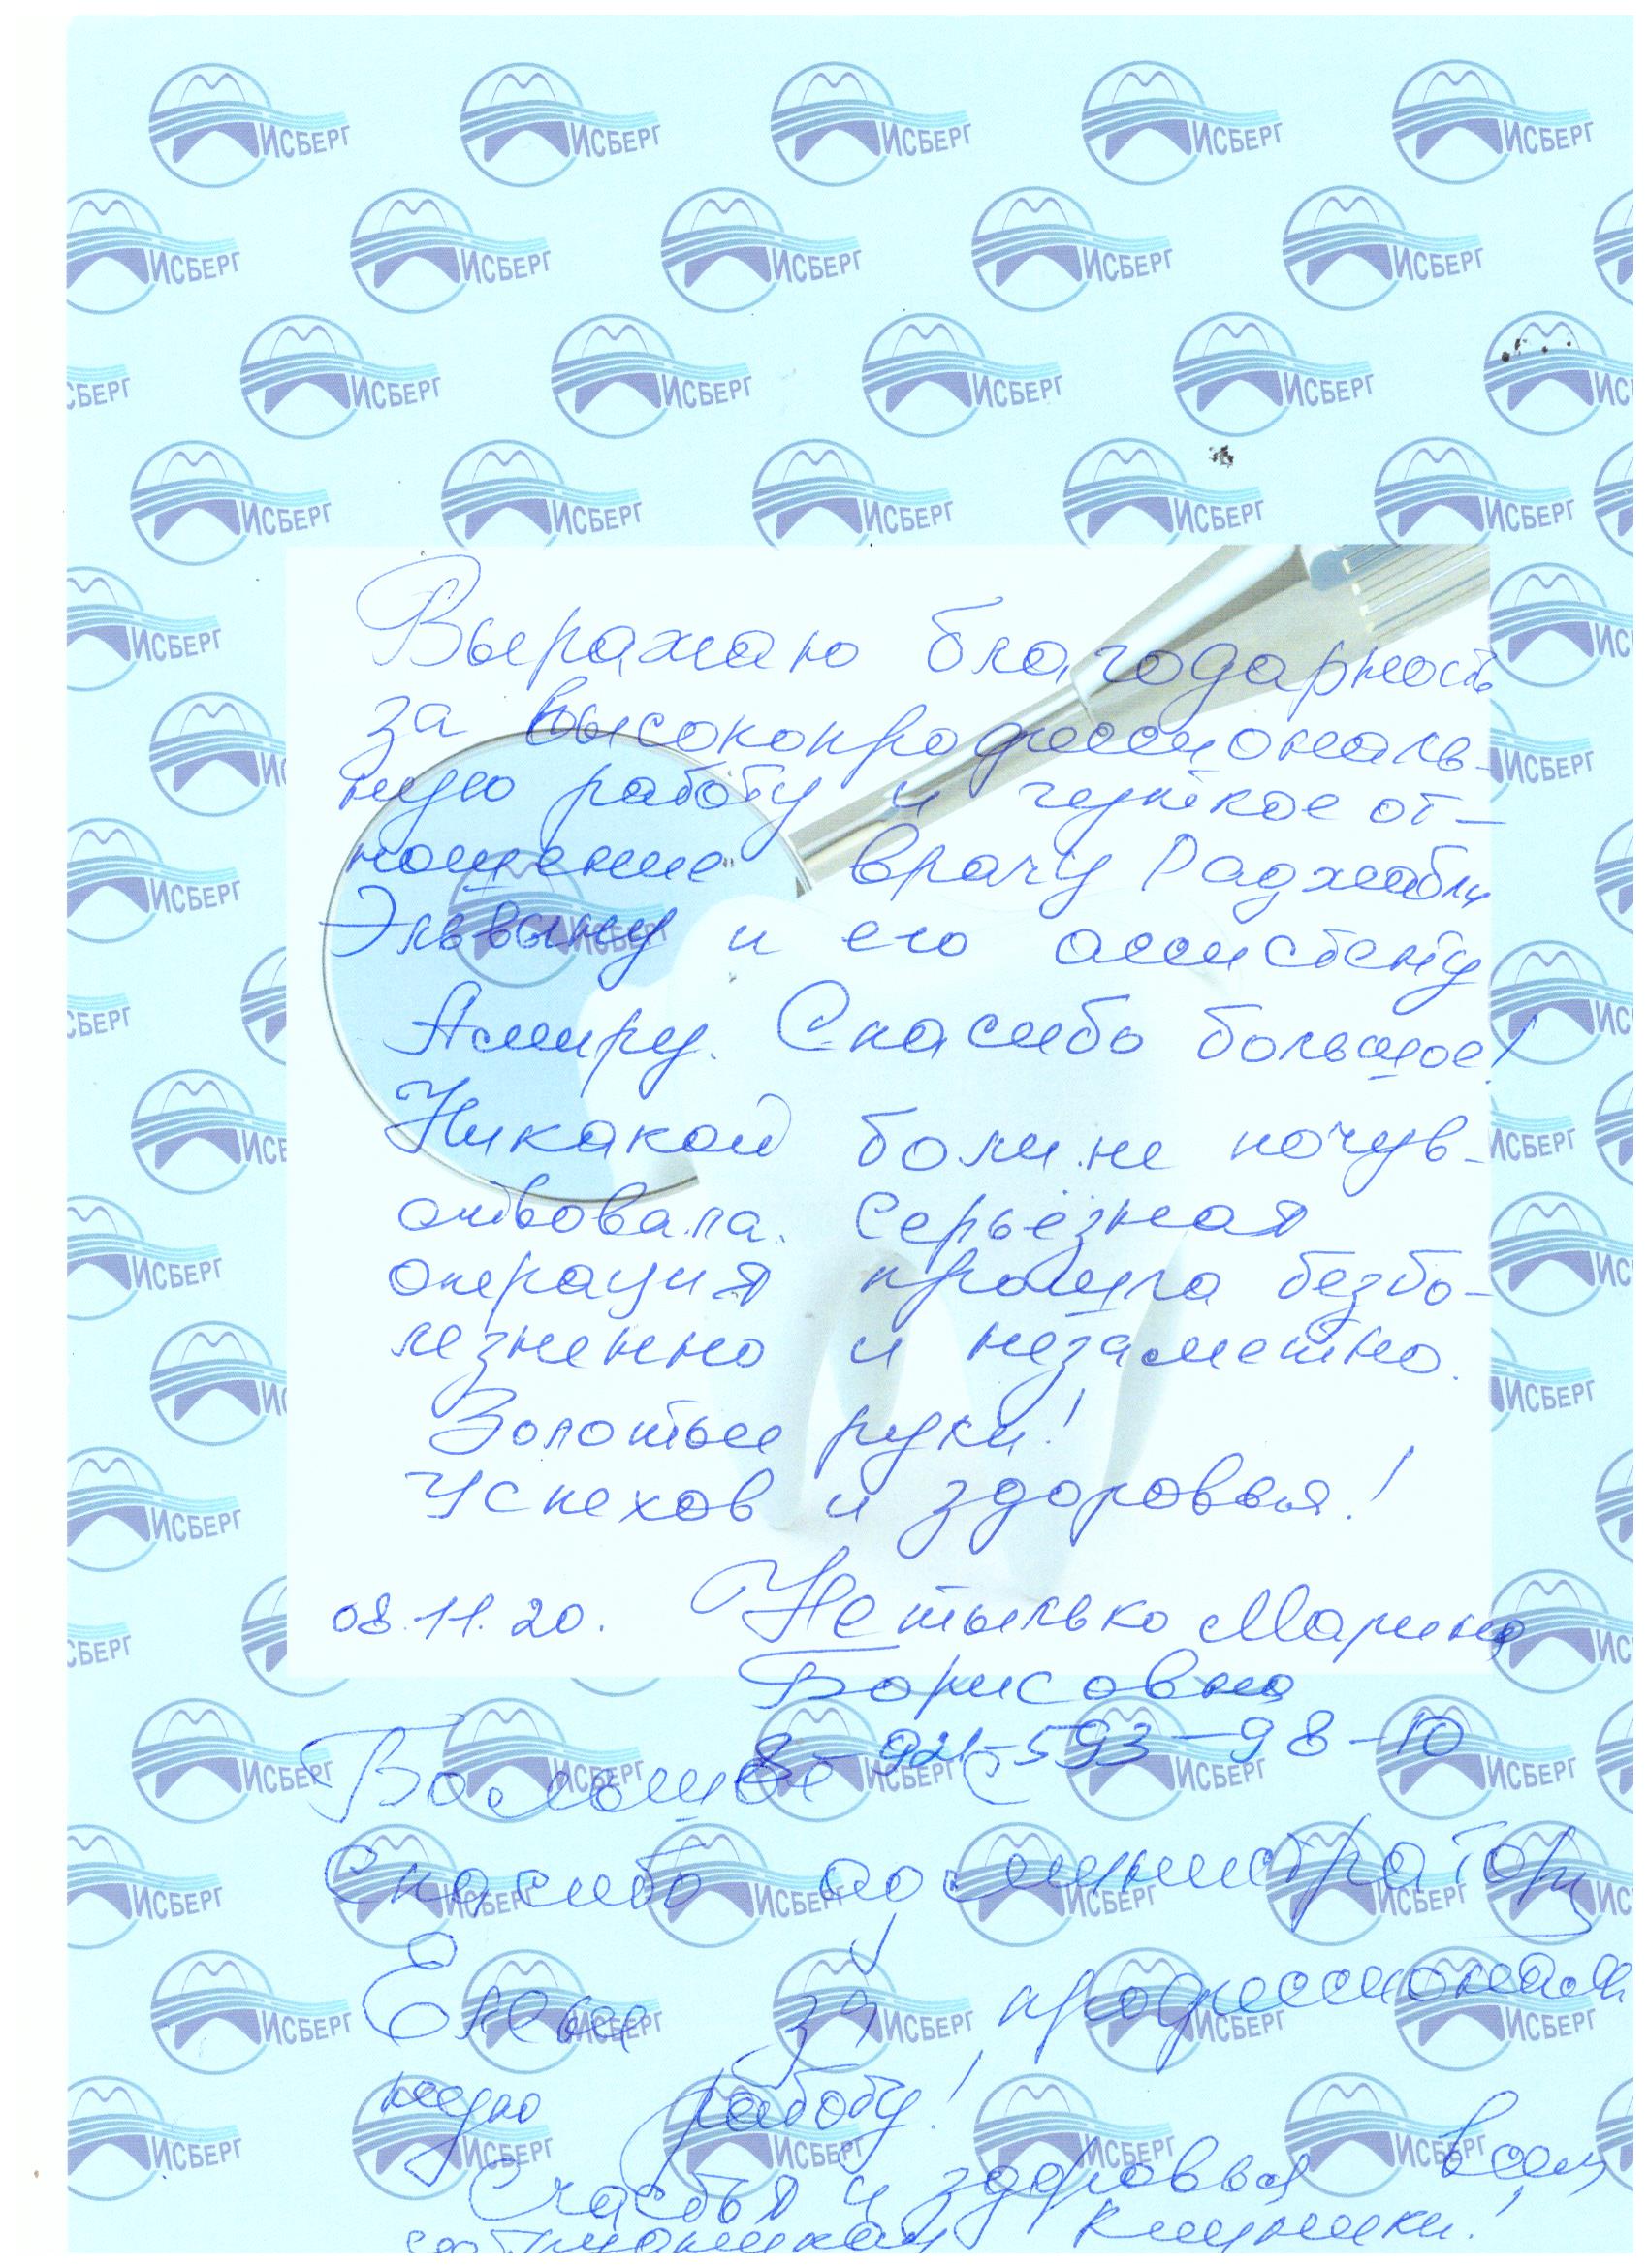 Выражаю благодарность
за высокопрофессиональ-
ную работу и чуткое от-
ношение врачу Раджабли
Эльвыну и его ассистенту
Амиру. Спасибо большое!
Никакой боли не почув-
ствовала. Серьёзная
операция прошла безбо-
лезненно и незаметно.
Золотые руки!
Успехов и здоровья!
08.11.20. Нетылько Марина
Борисовна
8-921-593-98-10
Большое С
Спасибо администратору
Елене за профессиональ
ную работу!
Счастья и здоровья всем
сотрудникам клиники!
ИСБЕРГ